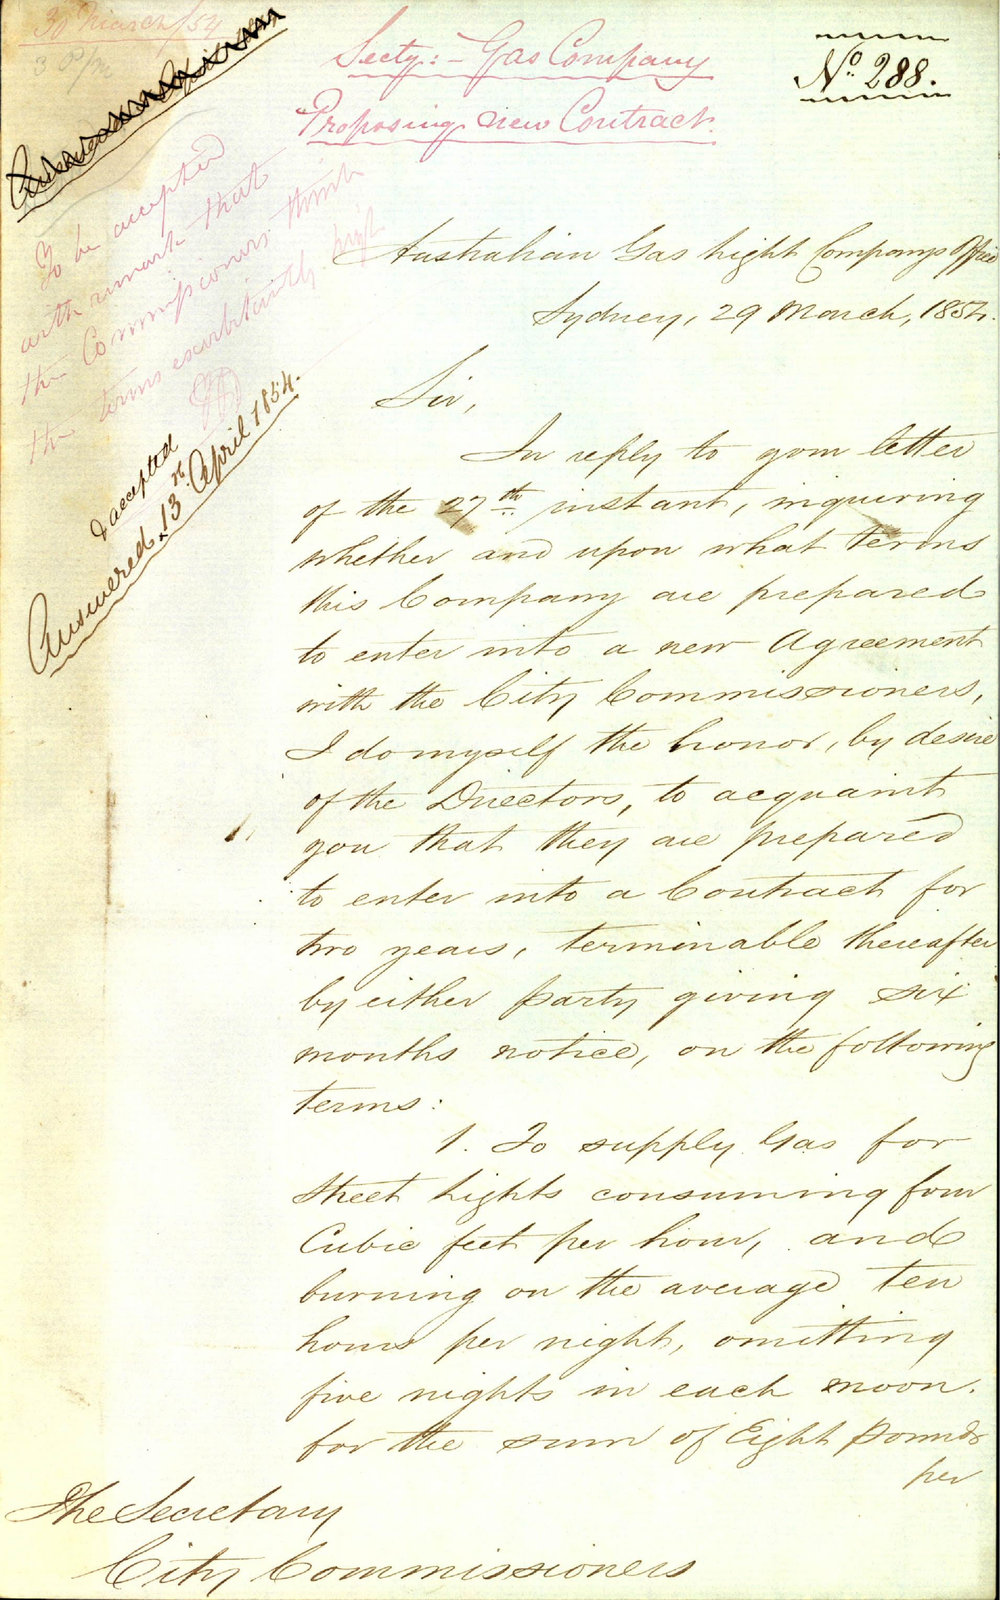 30 March/54
3 P/m
Secty: - Gas Company
Proposing new Contract.
No. 288.
To be accepted
with remark that
the Commissioners think
the terms exorbitantly high
& accepted
Answered 13th April 1854.
Australian Gas Light Companys Office
Sydney, 29 March, 1854.
Sir,
In reply to your letter
of the 27th instant, inquiring
whether and upon what terms
this Company are prepared
to enter into a new Agreement
with the City Commissioners,
I do myself the honor, by desire
of the Directors, to acquaint
you that they are prepared
to enter into a Contract for
two years, terminable thereafter
by either party giving six
months notice, on the following
terms:
1. To supply Gas for
Street Lights consuming four
Cubic feet per hour, and
burning on the average ten
hours per night, omitting
five nights in each moon.
for the sum of Eight Pounds
per
The Secretary
City Commissioners